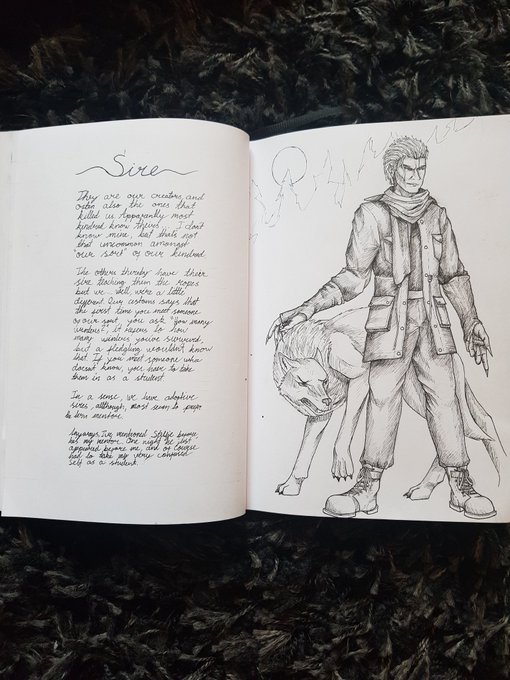 Sire
They are our creators, and
often also the ones that
killed us. Apparantly most
kindred know theirs... I don't
know mine, but thats not
that uncommon amongst
"our sort" of our kindred.
The others thereby have their
sire teaching them the ropes
but we... Well, we're a little
different. Our customs says that
the first time you meet someone
of our sort, you ask "How many
winters?", it refers to how
many winters you've survived,
but a fledgling wouldn't know
that. If you meet someone who
doesn't know, you have to take
them in as a student.
In a sense, we have adoptive
sires, although, most seem to prefer
to term mentore.
Anyways, I've mentioned before,
he's my mentore. One night he just
appeared before me, and of course
had to take my very confused
self as a student.